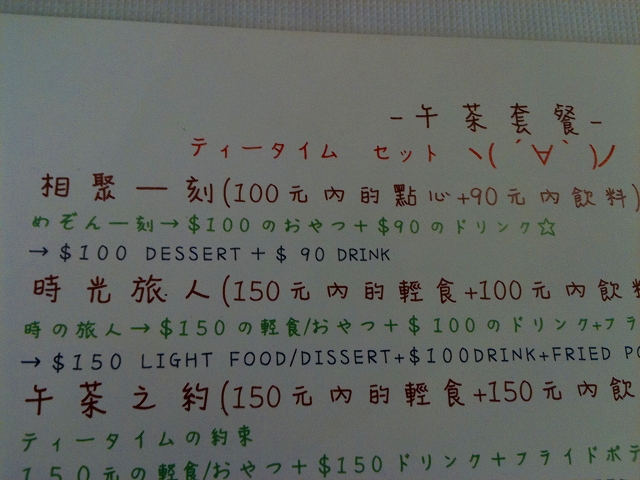 -午茶套餐-
ティータイム セット ヽ(´∀`)ノ
相聚一刻(100元內的點心+90元內飲料)
めぞん一刻→$100のおやつ+$90のドリンク☆
→$100 DESSERT+$90 DRINK
時光旅人(150元內的輕食+100元內飲料
時の旅人→$150の軽食/おやつ+$100のドリンク+フラ
→$150 LIGHT FOOD/DISSERT+$100DRINK+FRIED PO
午茶之約(150元內的輕食+150元內飲
ティータイムの約束
150元の軽食/おやつ+$150ドリンク+フライドポテ